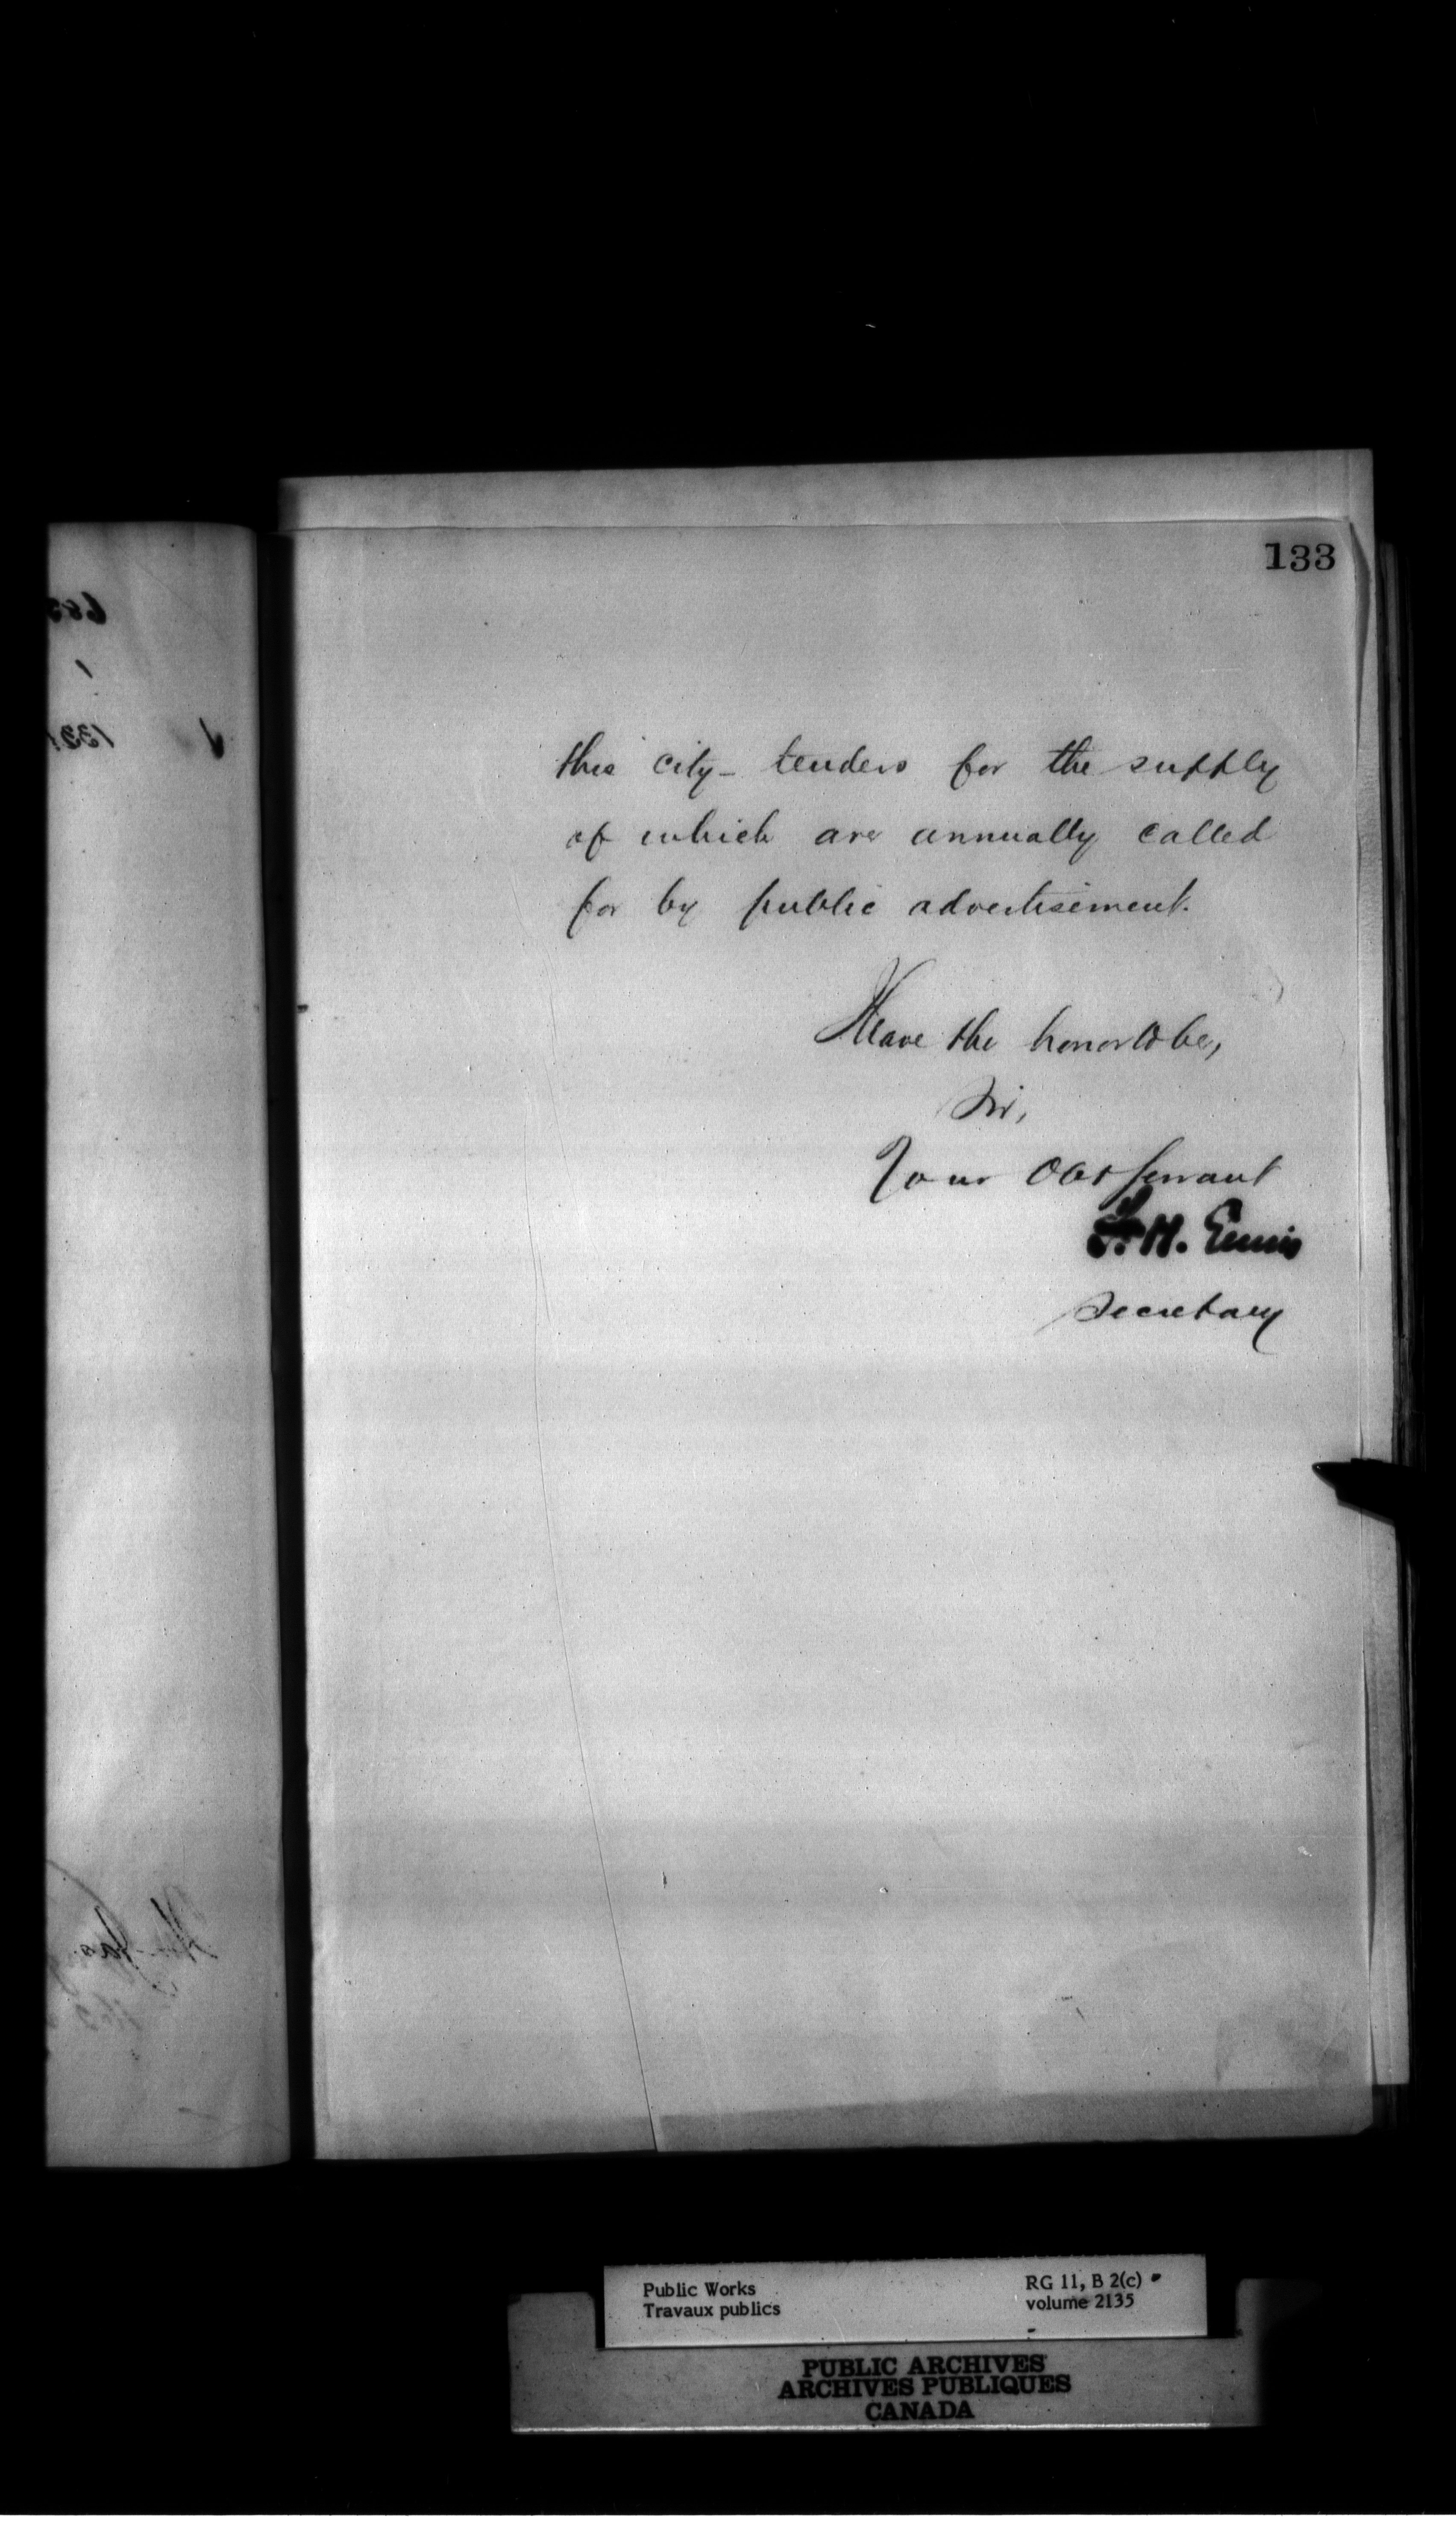 133
this city - tenders for the supply
of which are annually called
for by public advertisement.
I have the honor to be,
Sir,
Your Obt Servant
F. H. Ennis
Secretary
Public Works
Travaux publics
RG 11, B 2(c)
volume 2135
PUBLIC ARCHIVES
ARCHIVES PUBLIQUES
CANADA